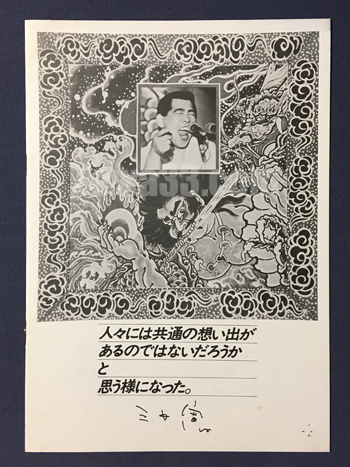 人々には共通の想い出が
あるのではないだろうか
と
思う様になった。
三上寛